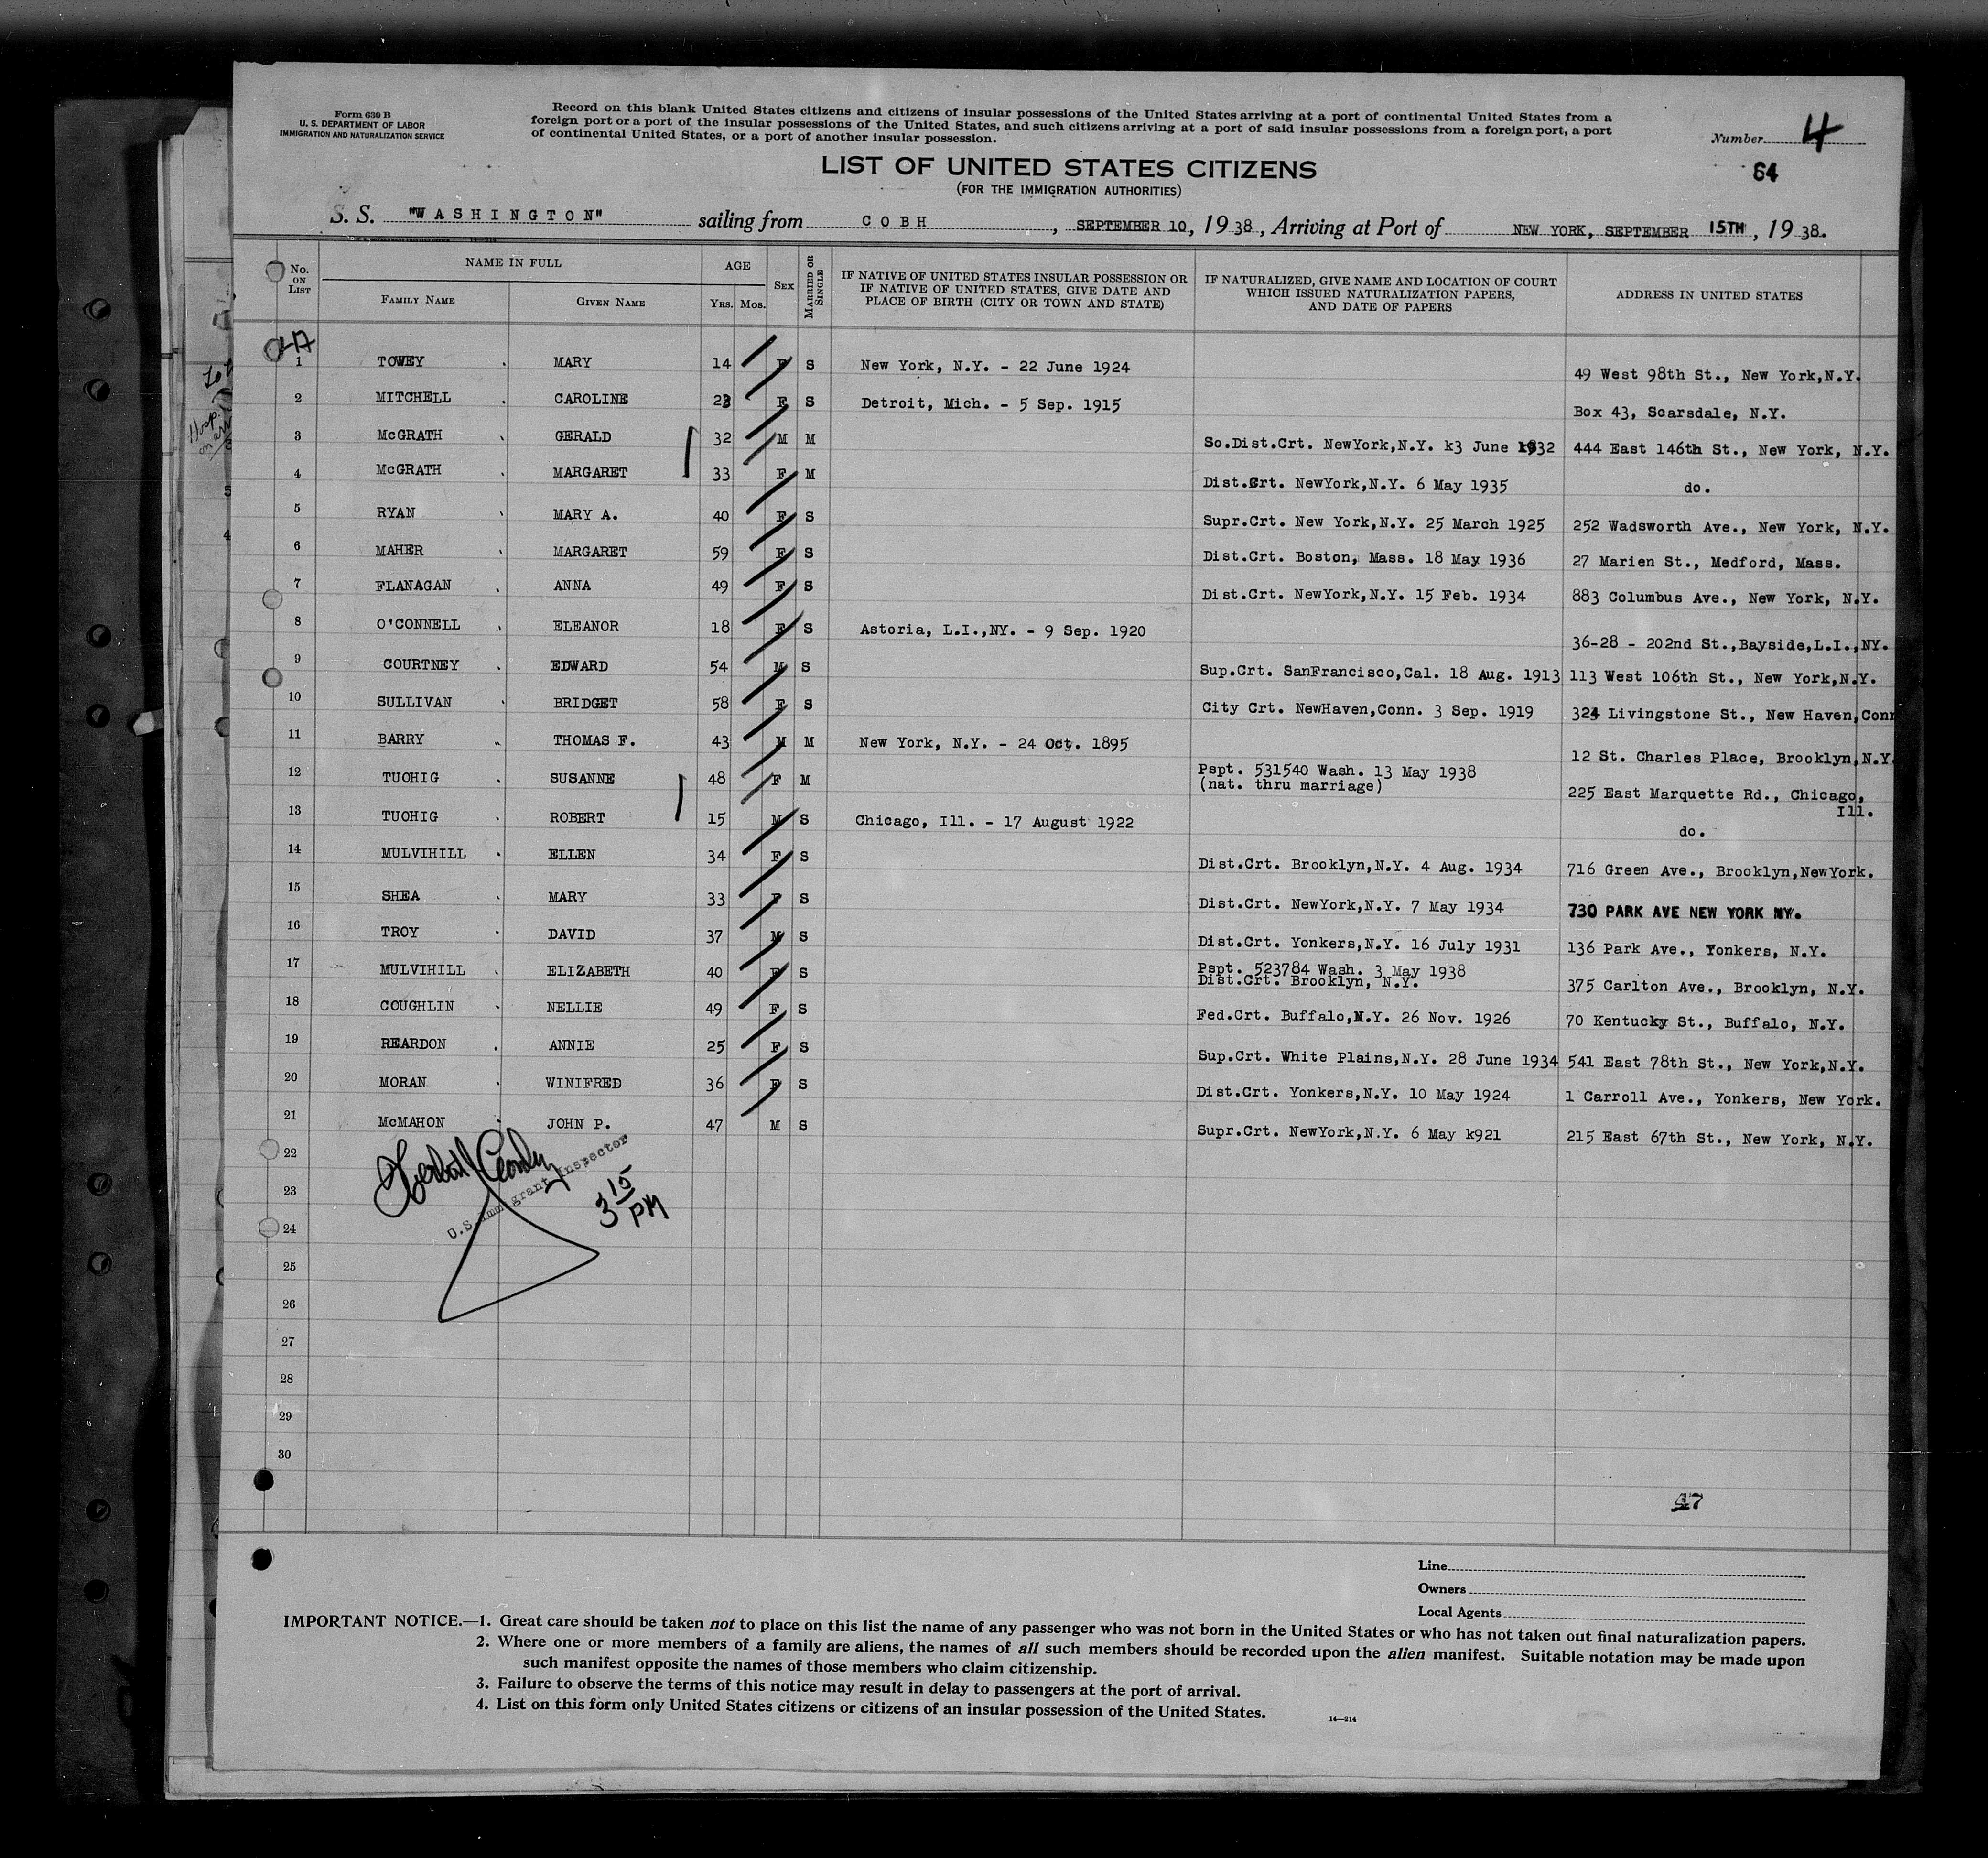 Form 630 B
U. S. DEPARTMENT OF LABOR
IMMIGRATION AND NATURALIZATION SERVICE
Record on this blank United States citizens and citizens of insular possessions of the United States arriving at a port of continental United States from a
foreign port or a port of the insular possessions of the United States, and such citizens arriving at a port of said insular possessions from a foreign port, a port
of continental United States, or a port of another insular possession.
Number 4
64
LIST OF UNITED STATES CITIZENS
(FOR THE IMMIGRATION AUTHORITIES)
S. S. "WASHINGTON" sailing from COBH, SEPTEMBER 10, 19 38, Arriving at Port of NEW YORK, SEPTEMBER 15TH, 19 38.
No. ON LIST
NAME IN FULL
FAMILY NAME
GIVEN NAME
AGE
YRS. MOS.
SEX
MARRIED OR SINGLE
IF NATIVE OF UNITED STATES INSULAR POSSESSION OR
IF NATIVE OF UNITED STATES, GIVE DATE AND
PLACE OF BIRTH (CITY OR TOWN AND STATE)
IF NATURALIZED, GIVE NAME AND LOCATION OF COURT
WHICH ISSUED NATURALIZATION PAPERS,
AND DATE OF PAPERS
ADDRESS IN UNITED STATES
1 TOWEY MARY 14 F S New York, N.Y. - 22 June 1924 49 West 98th St., New York,N.Y.
2 MITCHELL CAROLINE 23 F S Detroit, Mich. - 5 Sep. 1915 Box 43, Scarsdale, N.Y.
3 McGRATH GERALD 32 M M So.Dist.Crt. NewYork,N.Y. k3 June 1932 444 East 146th St., New York, N.Y.
4 McGRATH MARGARET 33 F M Dist.Crt. NewYork,N.Y. 6 May 1935 do.
5 RYAN MARY A. 40 F S Supr.Crt. New York,N.Y. 25 March 1925 252 Wadsworth Ave., New York, N.Y.
6 MAHER MARGARET 59 F S Dist.Crt. Boston, Mass. 18 May 1936 27 Marien St., Medford, Mass.
7 FLANAGAN ANNA 49 F S Dist.Crt. NewYork,N.Y. 15 Feb. 1934 883 Columbus Ave., New York, N.Y.
8 O'CONNELL ELEANOR 18 F S Astoria, L.I.,NY. - 9 Sep. 1920 36-28 - 202nd St.,Bayside,L.I.,NY.
9 COURTNEY EDWARD 54 M S Sup.Crt. SanFrancisco,Cal. 18 Aug. 1913 113 West 106th St., New York,N.Y.
10 SULLIVAN BRIDGET 58 F S City Crt. NewHaven,Conn. 3 Sep. 1919 324 Livingstone St., New Haven,Conn
11 BARRY THOMAS F. 43 M M New York, N.Y. - 24 Oct. 1895 12 St. Charles Place, Brooklyn,N.Y.
12 TUOHIG SUSANNE 48 F M Pspt. 531540 Wash. 13 May 1938
(nat. thru marriage) 225 East Marquette Rd., Chicago,
Ill.
13 TUOHIG ROBERT 15 M S Chicago, Ill. - 17 August 1922 do.
14 MULVIHILL ELLEN 34 F S Dist.Crt. Brooklyn,N.Y. 4 Aug. 1934 716 Green Ave., Brooklyn,NewYork.
15 SHEA MARY 33 F S Dist.Crt. NewYork,N.Y. 7 May 1934 730 PARK AVE NEW YORK NY.
16 TROY DAVID 37 M S Dist.Crt. Yonkers,N.Y. 16 July 1931 136 Park Ave., Yonkers, N.Y.
17 MULVIHILL ELIZABETH 40 F S Pspt. 523784 Wash. 3 May 1938
Dist.Crt. Brooklyn, N.Y. 375 Carlton Ave., Brooklyn, N.Y.
18 COUGHLIN NELLIE 49 F S Fed.Crt. Buffalo,N.Y. 26 Nov. 1926 70 Kentucky St., Buffalo, N.Y.
19 REARDON ANNIE 25 F S Sup.Crt. White Plains,N.Y. 28 June 1934 541 East 78th St., New York,N.Y.
20 MORAN WINIFRED 36 F S Dist.Crt. Yonkers,N.Y. 10 May 1924 1 Carroll Ave., Yonkers, New York.
21 McMAHON JOHN P. 47 M S Supr.Crt. NewYork,N.Y. 6 May k921 215 East 67th St., New York, N.Y.
22
23
U.S. Immigrant Inspector
3 15 PM
24
25
26
27
28
29
30
Line
Owners
Local Agents
IMPORTANT NOTICE.—1. Great care should be taken not to place on this list the name of any passenger who was not born in the United States or who has not taken out final naturalization papers.
2. Where one or more members of a family are aliens, the names of all such members should be recorded upon the alien manifest. Suitable notation may be made upon
such manifest opposite the names of those members who claim citizenship.
3. Failure to observe the terms of this notice may result in delay to passengers at the port of arrival.
4. List on this form only United States citizens or citizens of an insular possession of the United States.
14—214